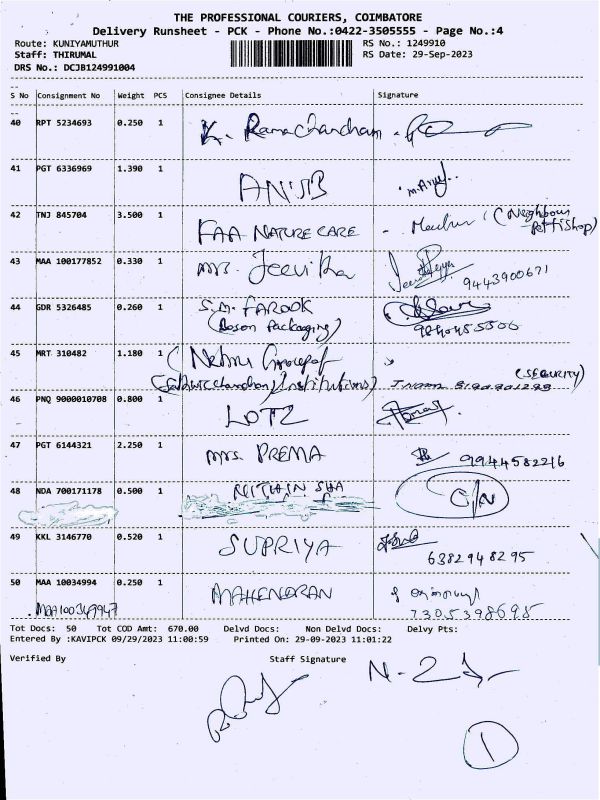 THE PROFESSIONAL COURIERS, COIMBATORE
Delivery Runsheet - PCK - Phone No.:0422-3505555 - Page No.:4
Route: KUNIYAMUTHUR RS No.: 1249910
Staff: THIRUMAL RS Date: 29-Sep-2023
DRS No.: DCJB124991004
S No Consignment No Weight PCS Consignee Details Signature
40 RPT 5234693 0.250 1 K. Ramachandham
41 PGT 6336969 1.390 1 ANISB
42 TNJ 845704 3.500 1 FAA NATURE CARE - (Neighbour
Pettishop)
43 MAA 100177852 0.330 1 Mrs. Jeevika
9443900671
44 GDR 5326485 0.260 1 S.M. FAROOK
(Boson Packaging)
45 MRT 310482 1.180 1 (Nehru Group of
Institutions) (SECURITY)
46 PNQ 9000010708 0.800 1 LOTZ
47 PGT 6144321 2.250 1 Mrs. PREMA 9944582216
48 NDA 700171178 0.500 1 NITHIN SHA C/N
49 KKL 3146770 0.520 1 SUPRIYA
6382948295
50 MAA 10034994 0.250 1 MAHENDRAN
MAA100349947 7305398695
Tot Docs: 50 Tot COD Amt: 670.00 Delvd Docs: Non Delvd Docs: Delvy Pts:
Entered By :KAVIPCK 09/29/2023 11:00:59 Printed On: 29-09-2023 11:01:22
Verified By Staff Signature
1